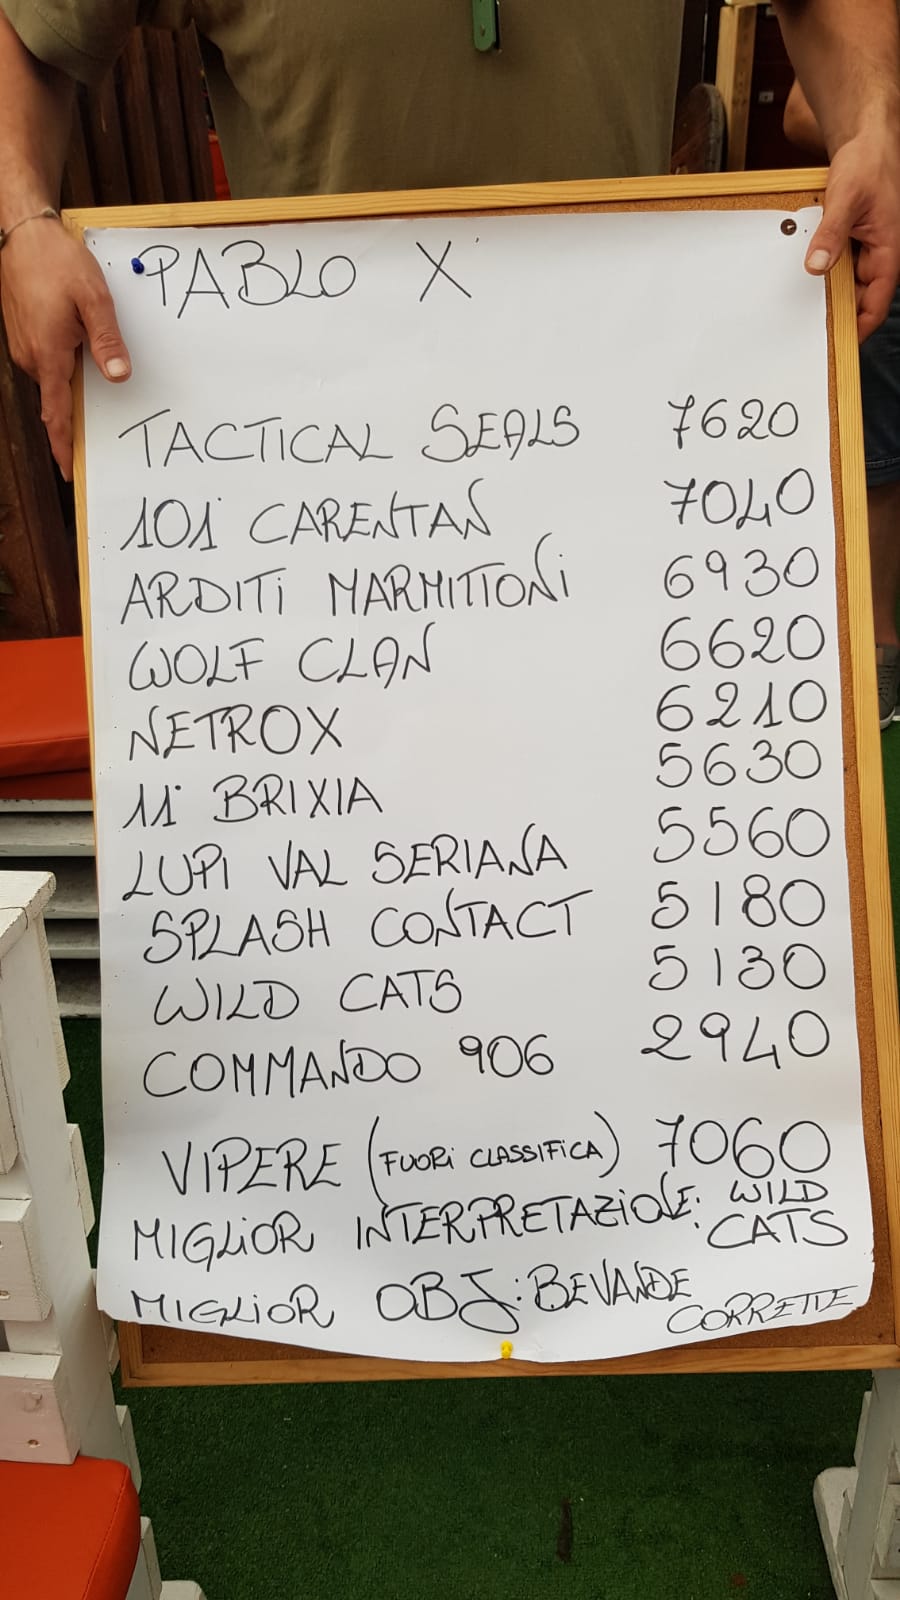 PABLO X
TACTICAL SEALS 7620
101° CARENTAN 7040
ARDITI MARMITTONI 6930
WOLF CLAN 6620
NETROX 6210
11° BRIXIA 5630
LUPI VAL SERIANA 5560
SPLASH CONTACT 5180
WILD CATS 5130
COMMANDO 906 2940
VIPERE (FUORI CLASSIFICA) 7060
MIGLIOR INTERPRETAZIONE: WILD
CATS
MIGLIOR OBJ: BEVANDE
CORRETTE